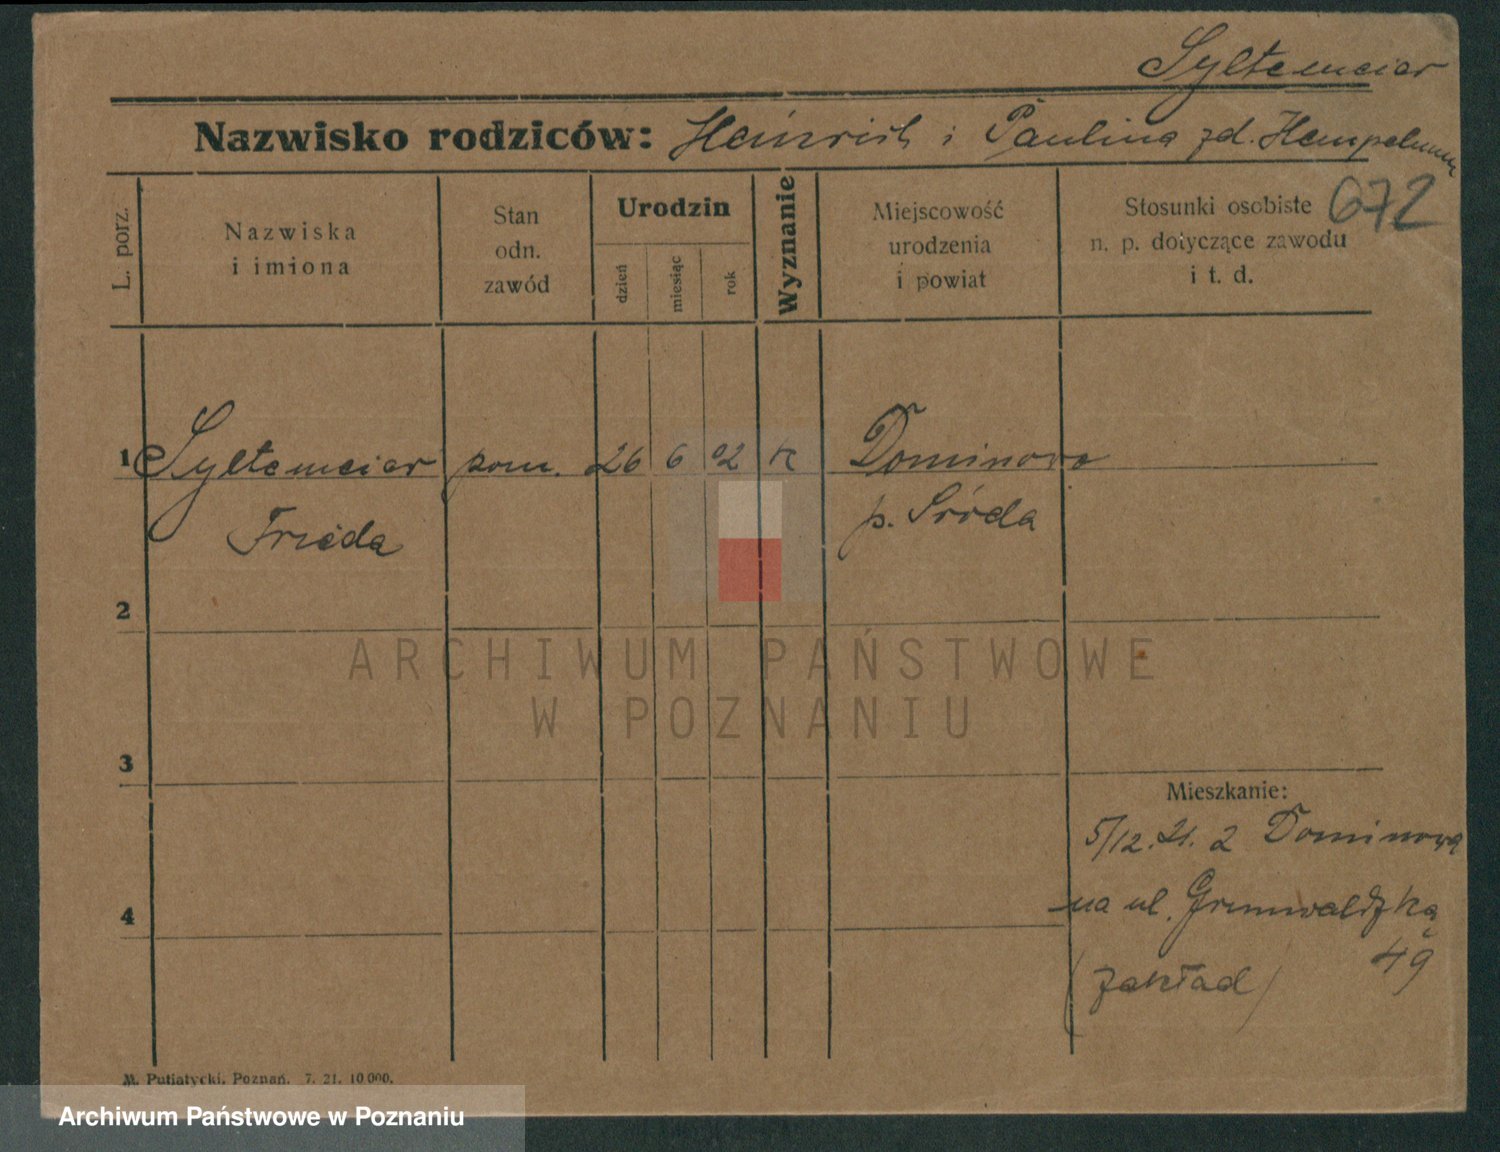 Syltemeier
Nazwisko rodziców: Heinrich i Paulina zd.
672
L. porz.
Nazwiska
i imiona
Stan
odn.
zawód
Urodzin
dzień
miesiąc
rok
Wyznanie
Miejscowość
urodzenia
i powiat
Stosunki osobiste
n. p. dotyczące zawodu
i t. d.
1 Syltemeier pom. 26 6 02 k Dominowo
Frieda p. Środa
2
ARCHIWUM PAŃSTWOWE
W POZNANIU
3
Mieszkanie:
5/12. 21. z Dominowa
4 na ul. Grunwaldzką
49
(zakład)
M. Putiatycki, Poznań. 7. 21. 10 000.
Archiwum Państwowe w Poznaniu